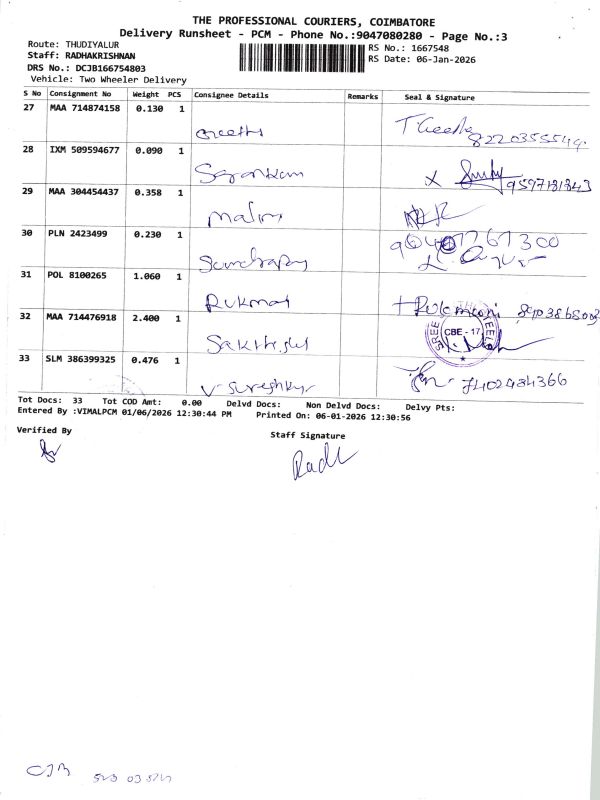 THE PROFESSIONAL COURIERS, COIMBATORE
Delivery Runsheet - PCM - Phone No.:9047080280 - Page No.:3
Route: THUDIYALUR
RS No.: 1667548
Staff: RADHAKRISHNAN
RS Date: 06-Jan-2026
DRS No.: DCJB166754803
Vehicle: Two Wheeler Delivery
S No Consignment No Weight PCS Consignee Details Remarks Seal & Signature
27 MAA 714874158 0.130 1
Geetha T. Geetha 8220355549
28 IXM 509594677 0.090 1
9597181843
29 MAA 304454437 0.358 1
Malini
30 PLN 2423499 0.230 1
31 POL 8100265 1.060 1
Rukmani Rukmani
32 MAA 714476918 2.400 1
CBE - 17
33 SLM 386399325 0.476 1
V Sureshkur 7402484366
Tot Docs: 33 Tot COD Amt: 0.00 Delvd Docs: Non Delvd Docs: Delvy Pts:
Entered By :VIMALPCM 01/06/2026 12:30:44 PM Printed On: 06-01-2026 12:30:56
Verified By
Staff Signature
Radh
CJB